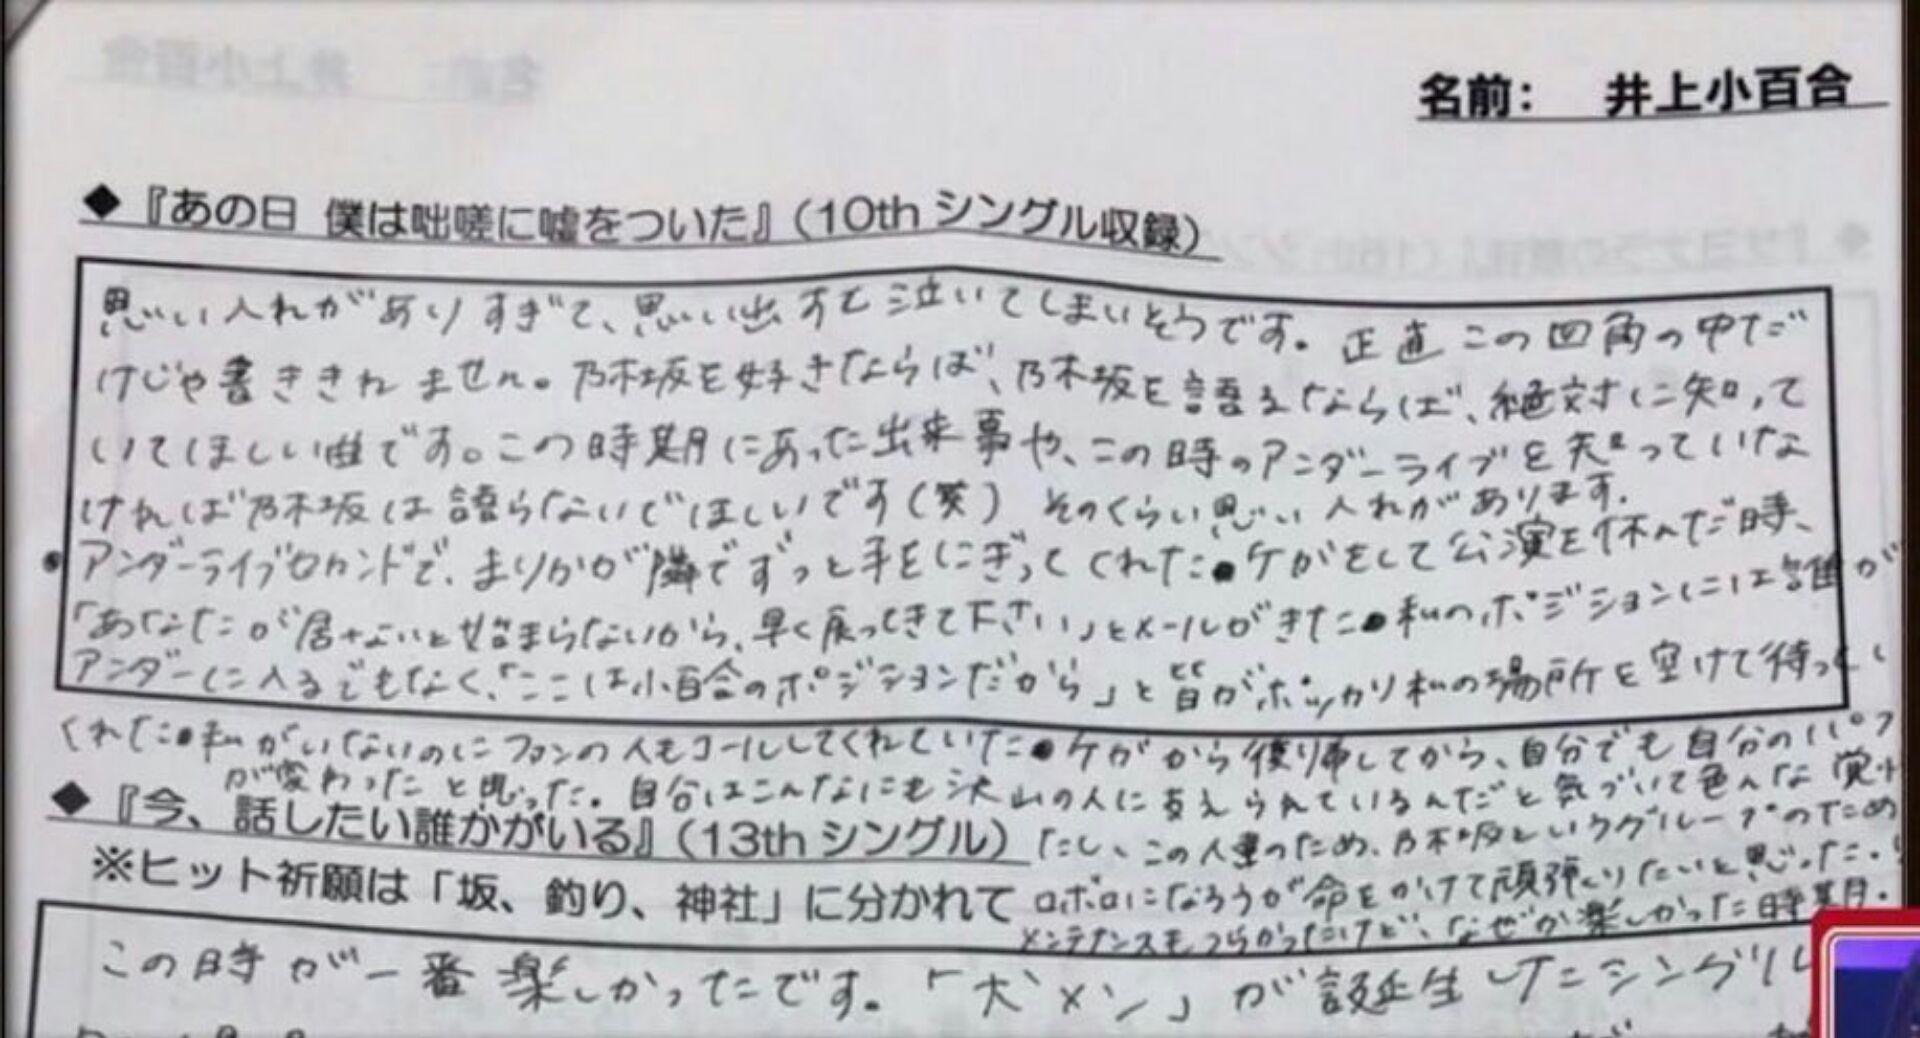 名前： 井上小百合
◆『あの日 僕は咄嗟に嘘をついた』（10th シングル収録）
思い入れがありすぎて、思い出すと泣いてしまいそうです。正直この四角の中だ
けじゃ書ききれません。乃木坂を好きならば、乃木坂を語るならば、絶対に知って
いてほしい曲です。この時期にあった出来事や、この時のアンダーライブを知っていな
ければ乃木坂は語らないでほしいです（笑） そのくらい思い入れがあります。
・アンダーライブセカンドで、まりかが隣でずっと手をにぎってくれた・ケガをして公演を休んだ時、
「あなたが居ないと始まらないから、早く戻ってきて下さい」とメールがきた・私のポジションには誰が
アンダーに入るでもなく、「ここは小百合のポジションだから」と皆がポッカリ私の場所を空けて待って
くれた・私がいないのにファンの人もコールしてくれていた・ケガから復帰してから、自分でも自分のパフ
が変わったと思った。自分はこんなにも沢山の人に支えられているんだと気づいて色んな覚
◆『今、話したい誰かがいる』（13th シングル）
たし、この人達のため、乃木坂というグループのため
※ヒット祈願は「坂、釣り、神社」に分かれて
ロボロになろうが命をかけて頑張りたいと思った。
メンテナンスもつらかったけど、なぜか楽しかった時期。
この時が一番楽しかったです。「犬メン」が誕生したシングル